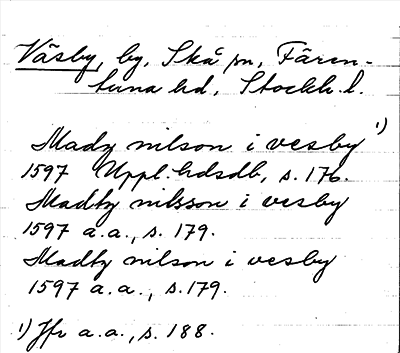 Väsby, by, Skå sn, Fären-
tuna hd, Stockh. l.
Mady nilson i vesby 1)
1597 Uppl. hdsdb, s. 176.
Madtz nilsson i vesby
1597 a.a., s. 179.
Madtz nilson i vesby
1597 a.a., s. 179.
1) Jfr a.a., s. 188.